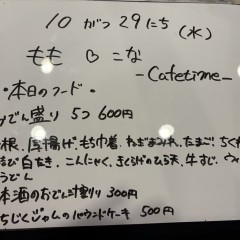 10 がつ 29にち (水)
もも ♡ こな
-Cafetime-
・本日のフード・
でん盛り 5つ 600円
根、厚揚げ、もち巾着、ねぎまぐれ、たまご、ちく
び白たき、こんにゃく、きくらげのひろ天、牛すじ、ウィ
うどん
本酒のおでん汁割り 300円
ちじくジャムのパウンドケーキ 500円